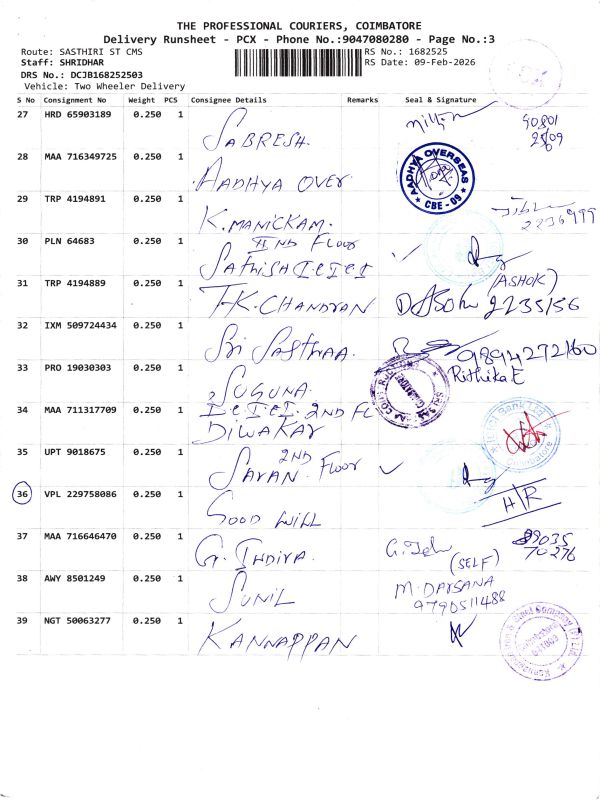 THE PROFESSIONAL COURIERS, COIMBATORE
Delivery Runsheet - PCX - Phone No.:9047080280 - Page No.:3
Route: SASTHIRI ST CMS RS No.: 1682525
Staff: SHRIDHAR RS Date: 09-Feb-2026
DRS No.: DCJB168252503
Vehicle: Two Wheeler Delivery
S No Consignment No Weight PCS Consignee Details Remarks Seal & Signature
27 HRD 65903189 0.250 1 SABRESH.
28 MAA 716349725 0.250 1 AADHYA OVER. AADHYA OVERSEAS * CBE - 09 *
29 TRP 4194891 0.250 1 K. MANICKAM. 2236999
30 PLN 64683 0.250 1 IInd Floor
SATHISH ICICI
31 TRP 4194889 0.250 1 T.K. CHANDRAN (ASHOK) 2235156
32 IXM 509724434 0.250 1 Sri SASTHAA.
33 PRO 19030303 0.250 1 SUGUNA. Rithika E
34 MAA 711317709 0.250 1 ICICI. 2ND FL
DIWAKAR
35 UPT 9018675 0.250 1 2ND Floor
SARAN.
36 VPL 229758086 0.250 1 GOOD WILL H/R
37 MAA 716646470 0.250 1 G. INDIRA. 89035
70276
(SELF)
38 AWY 8501249 0.250 1 SUNIL M. DARSANA
9790511488
39 NGT 50063277 0.250 1 KANNAPPAN